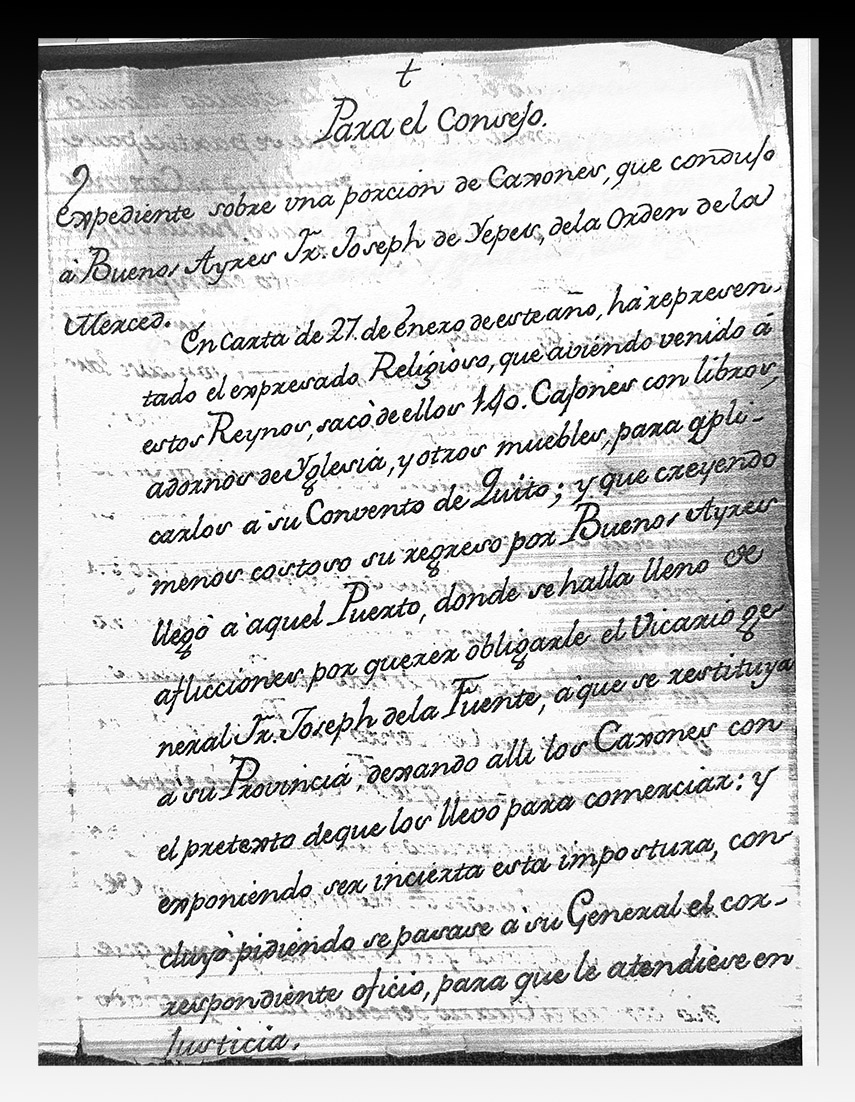 †
Para el Consejo.
Expediente sobre vna porcion de Caxones, que condujo
à Buenos Ayres Fr. Joseph de Yepes, dela Orden dela
Merced.
En Carta de 27. de Enero de este año, ha represen-
tado el expresado Religioso, que aviendo venido á
estos Reynos, sacò de ellos 140. Cajones con libros,
adornos de Yglesia, y otros muebles, para apli-
carlos a su Convento de Quito; y que creyendo
menos costoso su regreso por Buenos Ayres
llegò a aquel Puerto, donde se halla lleno de
aflicciones por querer obligarle el Vicario ge-
neral Fr. Joseph dela Fuente, a que se restituya
a su Provincia, dexando alli los Caxones con
el pretexto deque los llevò para comerciar: y
exponiendo ser incierta esta impostura, con-
cluyò pidiendo se pasase a su General el cor-
respondiente oficio, para que le atendiese en
Justicia.